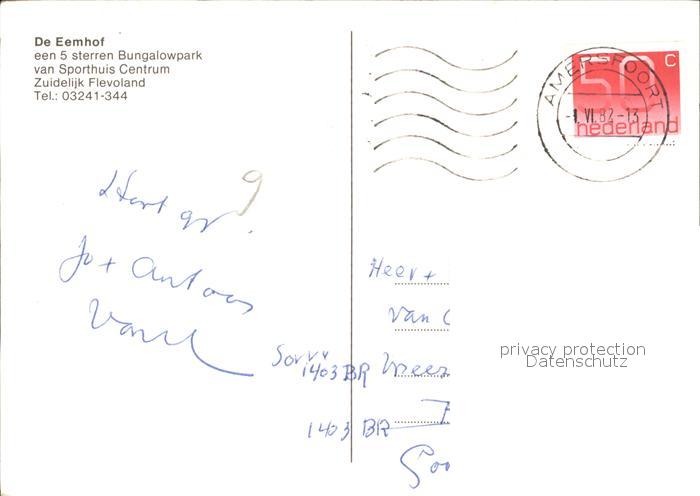 De Eemhof
een 5 sterren Bungalowpark
van Sporthuis Centrum
Zuidelijk Flevoland
Tel.: 03241-344
50 C
nederland
AMERSFOORT
-1.VI.82-13
9
Hart gr.
Jo + Antoos
Heer +
van
Sorry
1403 BR
1403 BR
privacy protection
Datenschutz